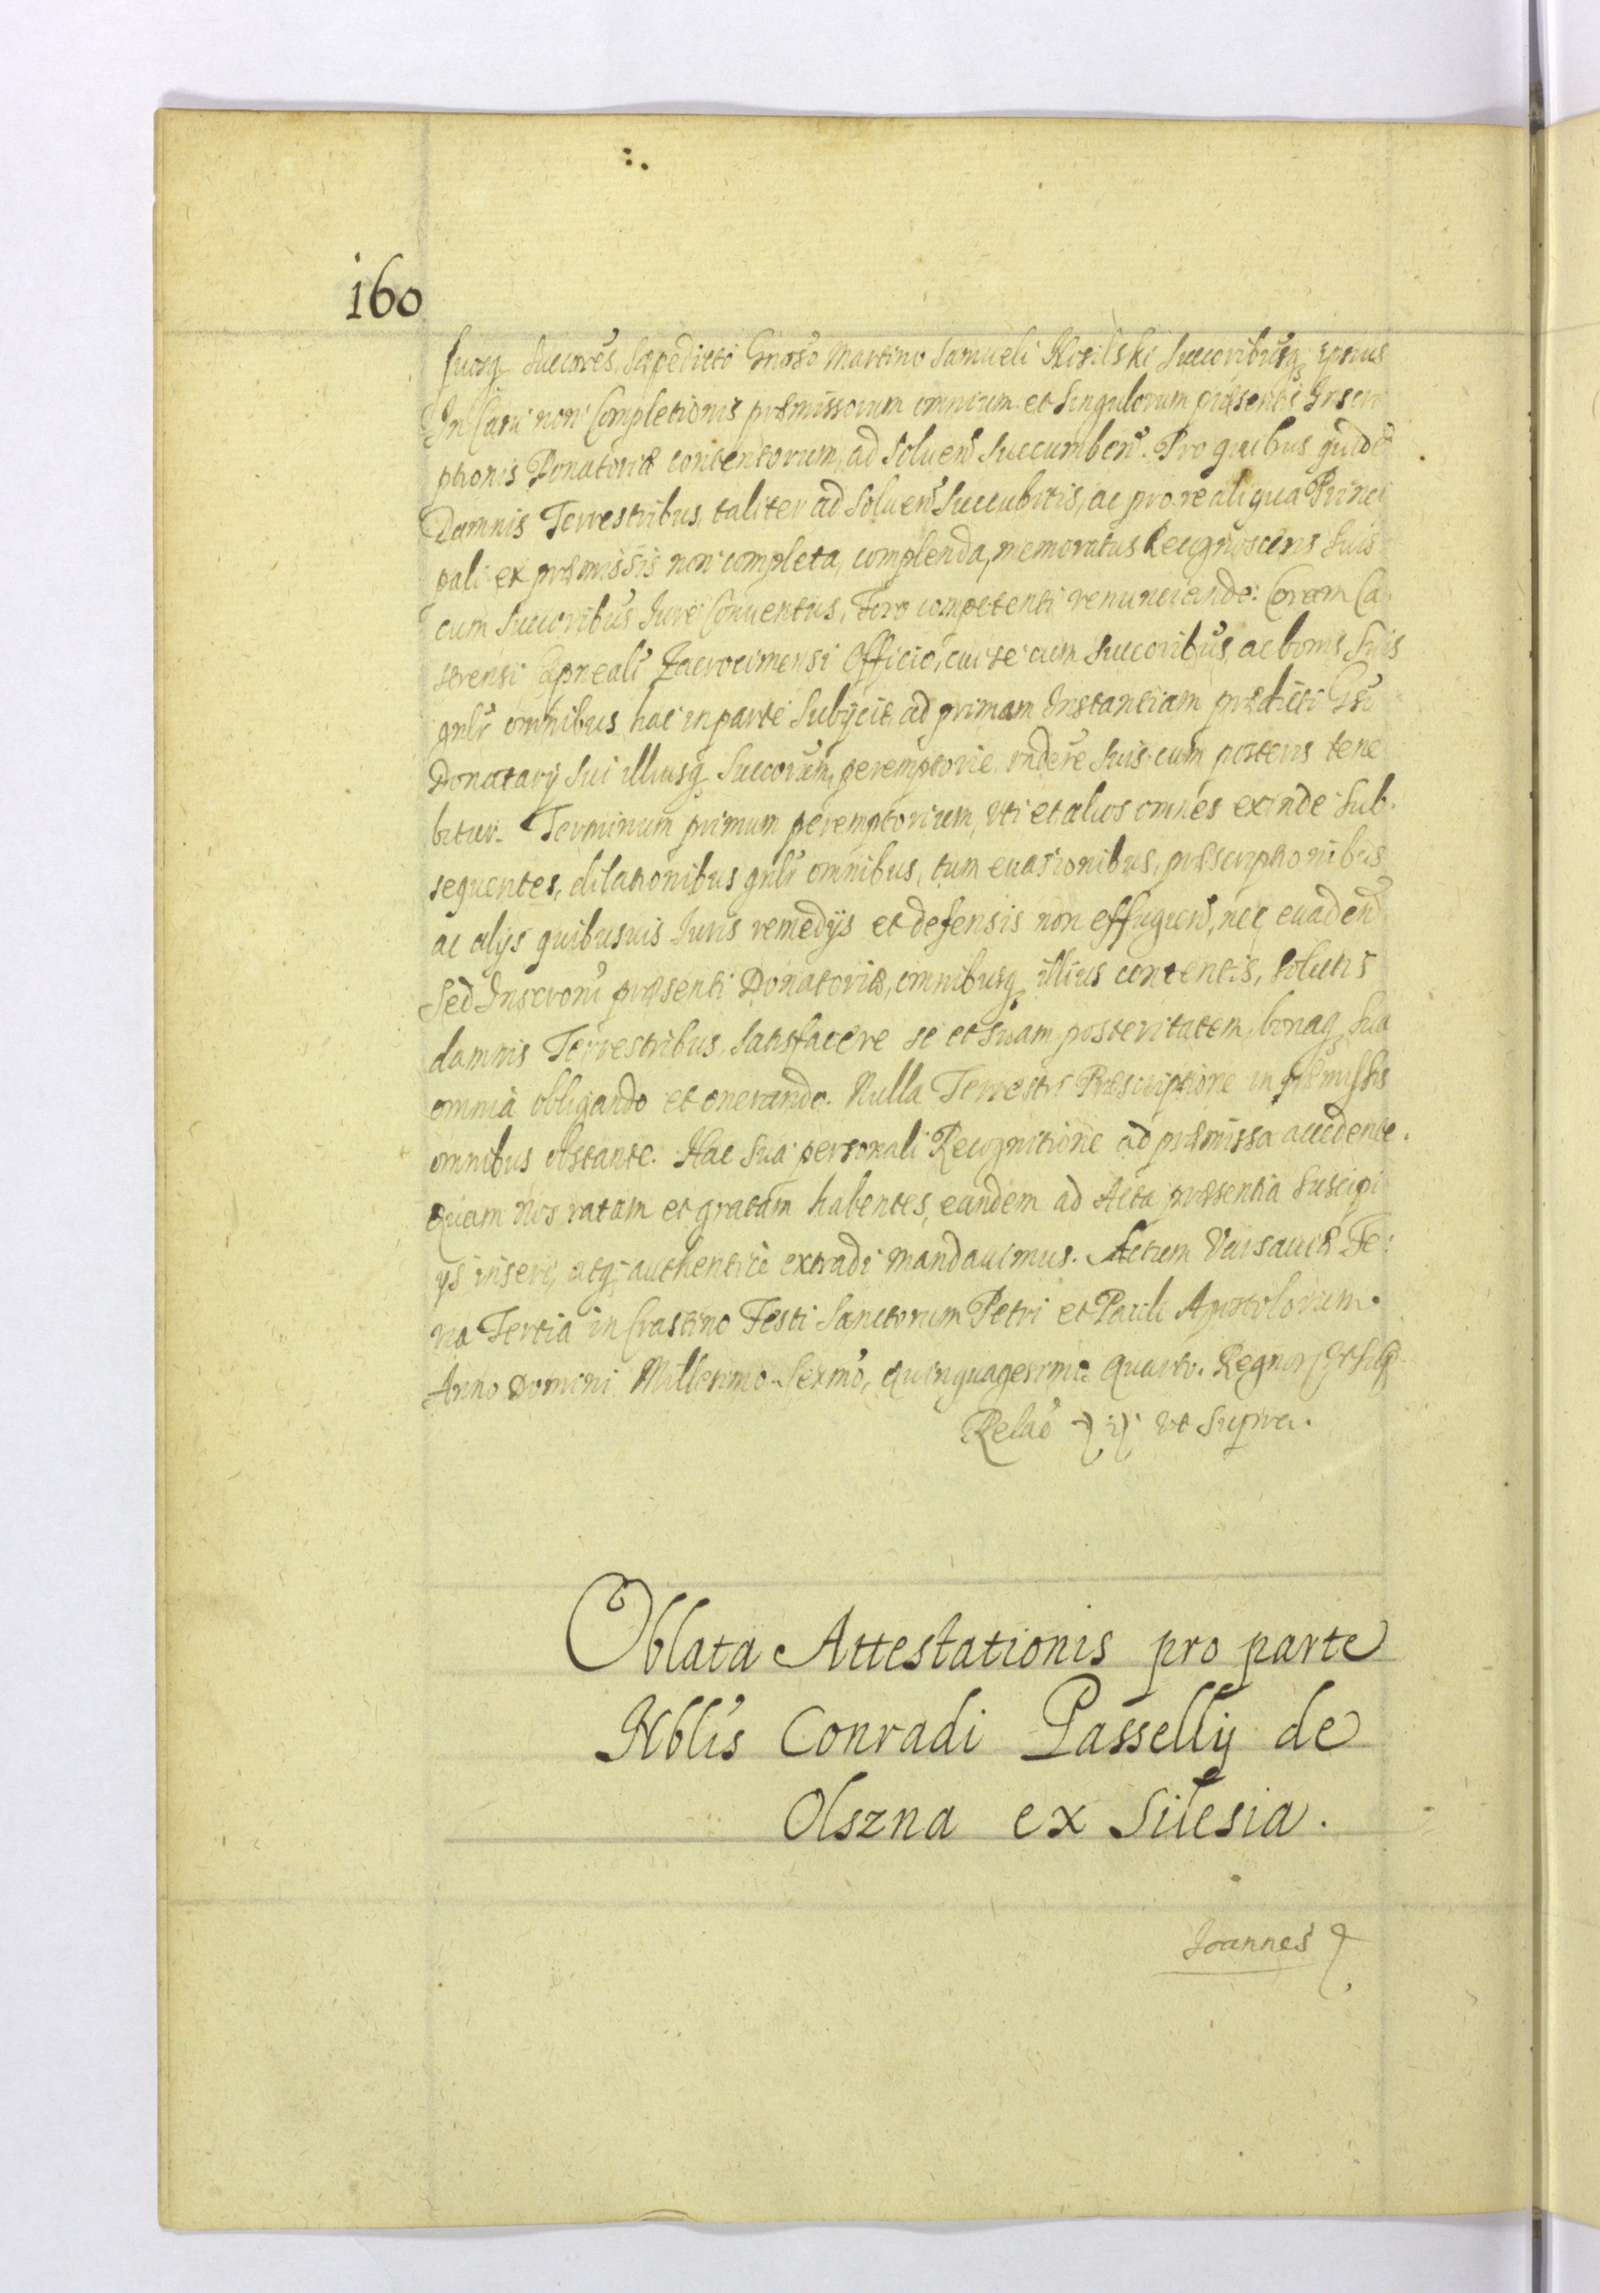 160
suosq Succores, Saepedicto Gnoso Martino Samueli Succoribusq ipsius
In Casu non Completionis praemissorum omnium et Singulorum praesentis Inscri
ptionis Donatoriae contentorum, ad Soluen Succumben. Pro quibus quide
Damnis Terrestribus, taliter ad Soluen Succubitis, ac pro re aliqua Princi
pali ex praemissis non completa, complenda, memoratus Recognoscens Suis
cum Succoribus Jure Conuentus, Foro competenti renunciando: Coram Ca
strensi Capneali Zacrocimensi Officio, cui se cum Succoribus, ac bonis Suis
gnlr omnibus hac in parte Subijcit ad primam Instantiam praedicti Gsi
Donatarij Sui illiusq Succorum, peremptorie, rndere Suis cum posteris tene
bitur. Terminum primum peremptorium, Uti et alios omnes exinde Sub
sequentes, dilationibus gnlr omnibus, tum euasionibus, praescriptionibus
ac alijs quibusuis Juris remedijs et defensis non effugien, neq euaden
Sed Inscroni praesenti Donatoriae, omnibusq illius contentis, Solutis
damnis Terrestribus, Satisfacere se et Suam posteritatem, bonaq Sua
omnia obligando et onerando. Nulla Terrestri Praescriptione in praemissis
omnibus obstante. Hac Sua personali Recognitione ad praemissa accedente.
Quam Nos ratam et gratam habentes, eandem ad Acta praesentia Suscipi
ijs inseri, atq authentice extradi mandauimus. Actum Varsauiae Fe
ria Tertia in Crastino Festi Sanctorum Petri et Pauli Apostolorum.
Anno Domini Millesimo Sexmo, Quinquagesimo Quarto. Regnor
Relao ut Supra.
Oblata Attestationis pro parte
Nblis Conradi Passellij de
Olszna ex Silesia.
Joannes